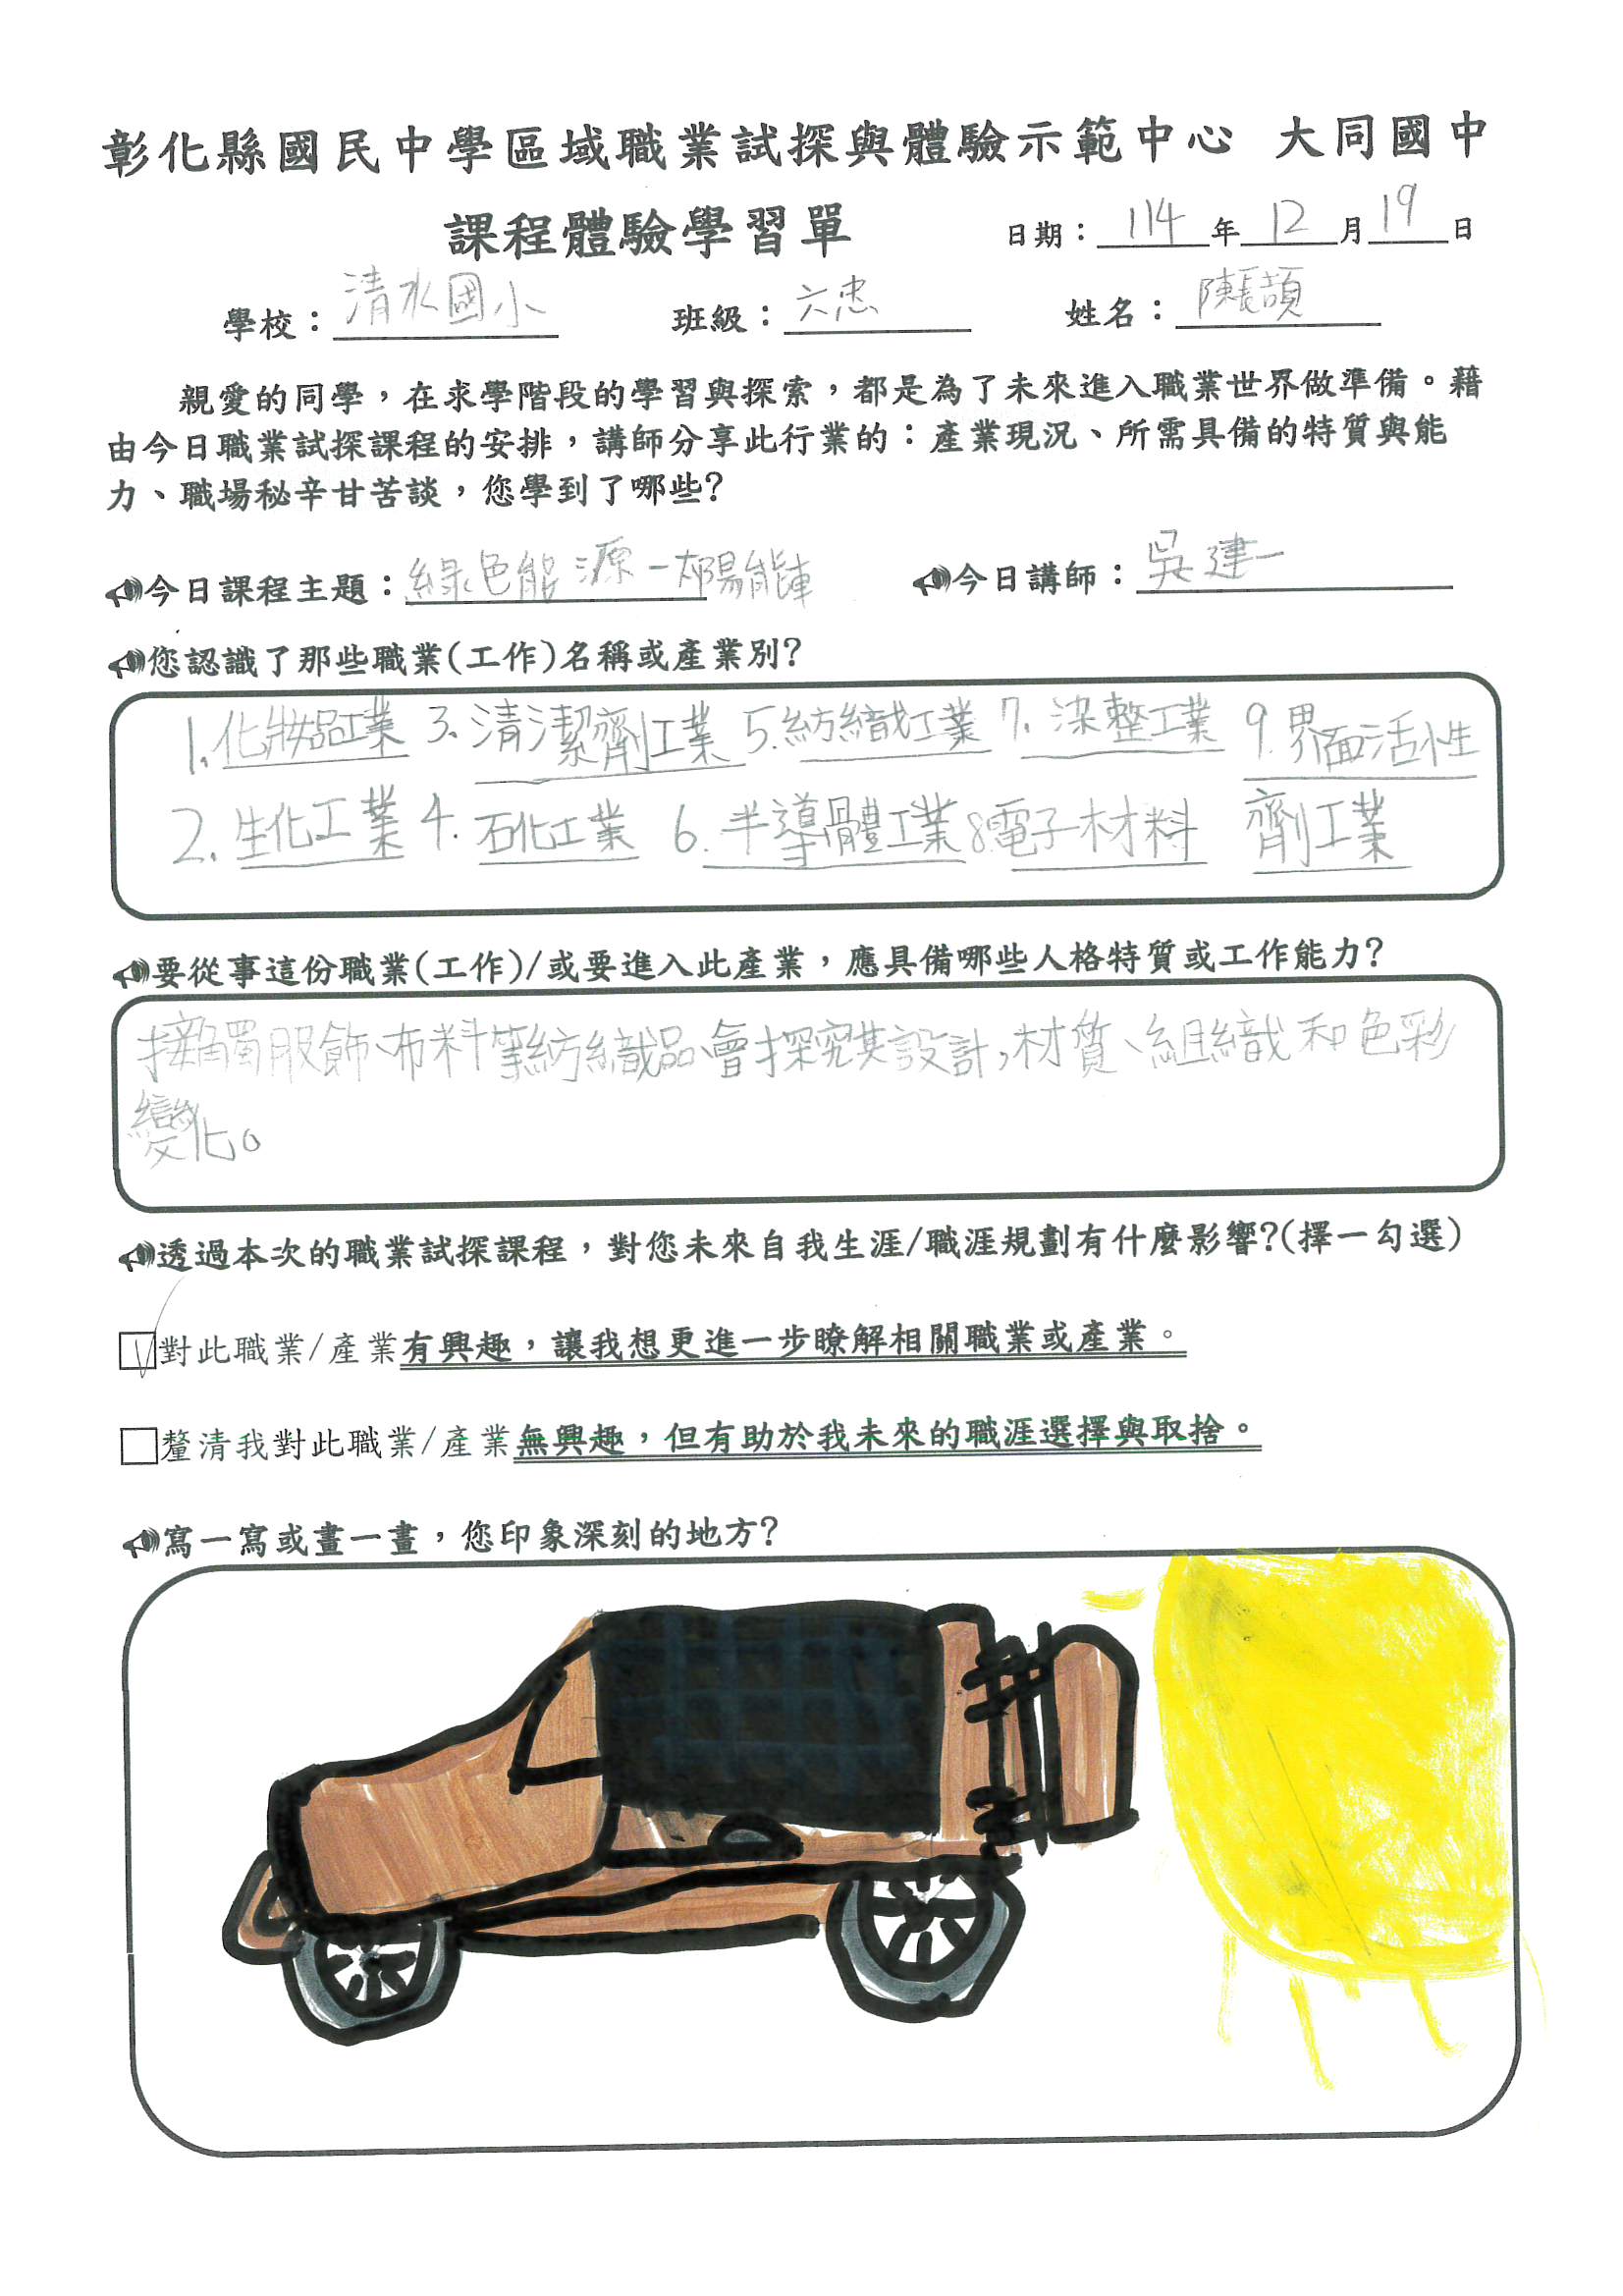 彰化縣國民中學區域職業試探與體驗示範中心 大同國中
課程體驗學習單 日期：114年12月19日
學校：清水國小 班級：六忠 姓名：陳
親愛的同學，在求學階段的學習與探索，都是為了未來進入職業世界做準備。藉
由今日職業試探課程的安排，講師分享此行業的：產業現況、所需具備的特質與能
力、職場秘辛甘苦談，您學到了哪些?
今日課程主題：綠色能源－太陽能車 今日講師：吳建一
您認識了那些職業(工作)名稱或產業別?
1.化妝品工業 3.清潔劑工業 5.紡織工業 7.染整工業 9.界面活性
2.生化工業 4.石化工業 6.半導體工業 8.電子材料 劑工業
要從事這份職業(工作)/或要進入此產業，應具備哪些人格特質或工作能力?
接觸服飾、布料等紡織品、會探究其設計，材質、組織和色彩
變化。
透過本次的職業試探課程，對您未來自我生涯/職涯規劃有什麼影響?(擇一勾選)
對此職業/產業有興趣，讓我想更進一步瞭解相關職業或產業。
釐清我對此職業/產業無興趣，但有助於我未來的職涯選擇與取捨。
寫一寫或畫一畫，您印象深刻的地方?